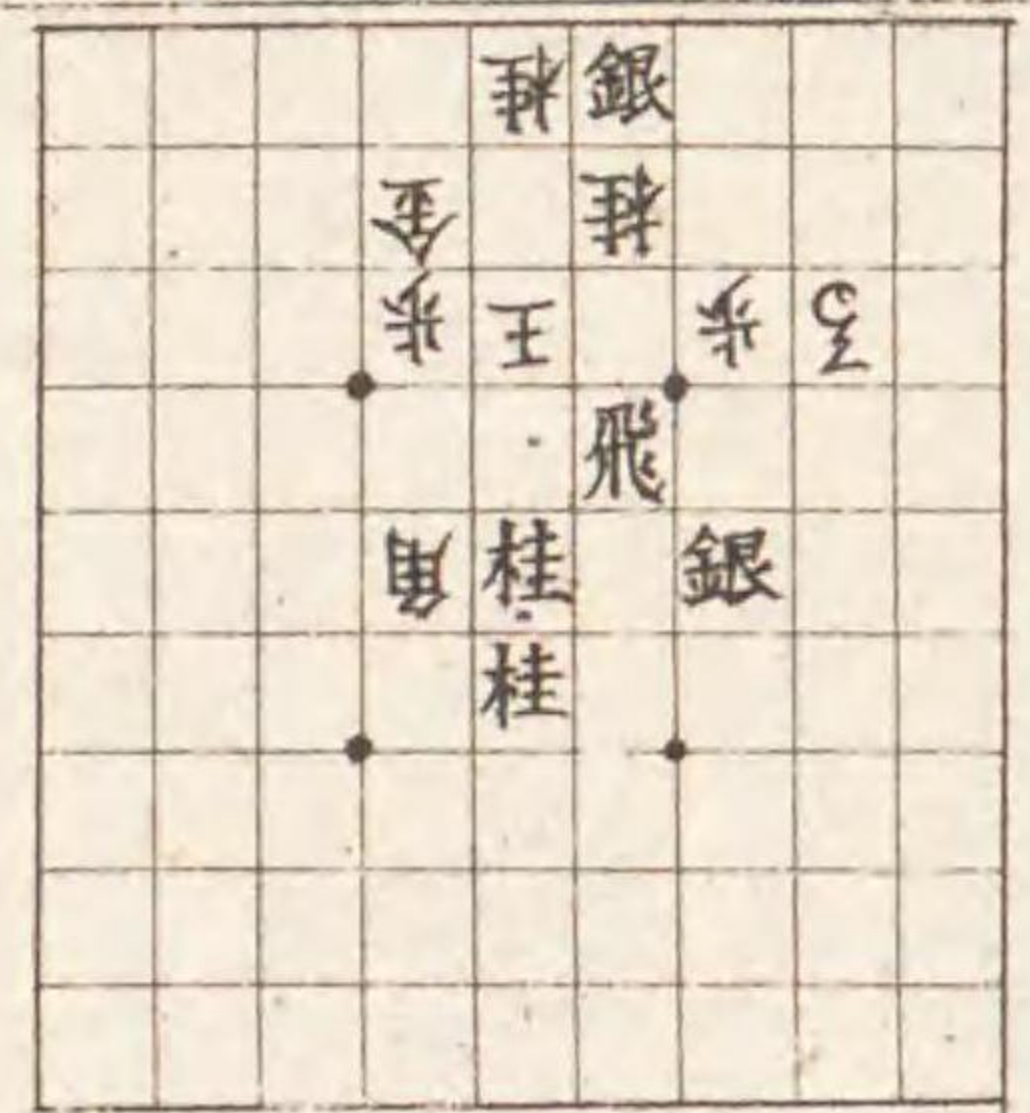 桂 銀
金 桂
歩 王 歩
飛
角 桂 銀
桂